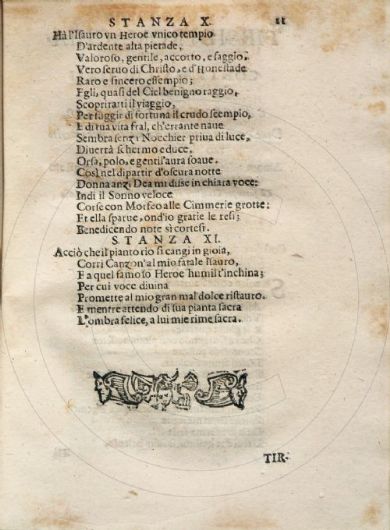 STANZA X. 11
Hà l'Isauro vn Heroe vnico tempio
D'ardente alta pietade,
Valoroso, gentile, accorto, e saggio,
Vero seruo di Christo, e d'Honestade
Raro e sincero essempio;
Egli, quasi del Ciel benigno raggio,
Scopriratti il viaggio,
Per fuggir di fortuna il crudo scempio,
E di tua vita fral, ch'errante naue
Sembra senza Nocchier priua di luce,
Diuerrà schermo e duce,
Orsa, polo, e gentil'aura soaue.
Così nel dipartir d'oscura notte
Donna anzi Dea mi disse in chiara voce:
Indi il Sonno veloce
Corse con Morfeo alle Cimmerie grotte;
Et ella sparue, ond'io gratie le resi;
Benedicendo note sì cortesi.
STANZA XI.
Acciò che il pianto rio si cangi in gioia,
Corri Canzon'al mio fatale Isauro,
E a quel famoso Heroe humil t'inchina;
Per cui voce diuina
Promette al mio gran mal dolce ristauro.
E mentre attendo di sua pianta sacra
L'ombra felice, a lui mie rime sacra.
TIR-